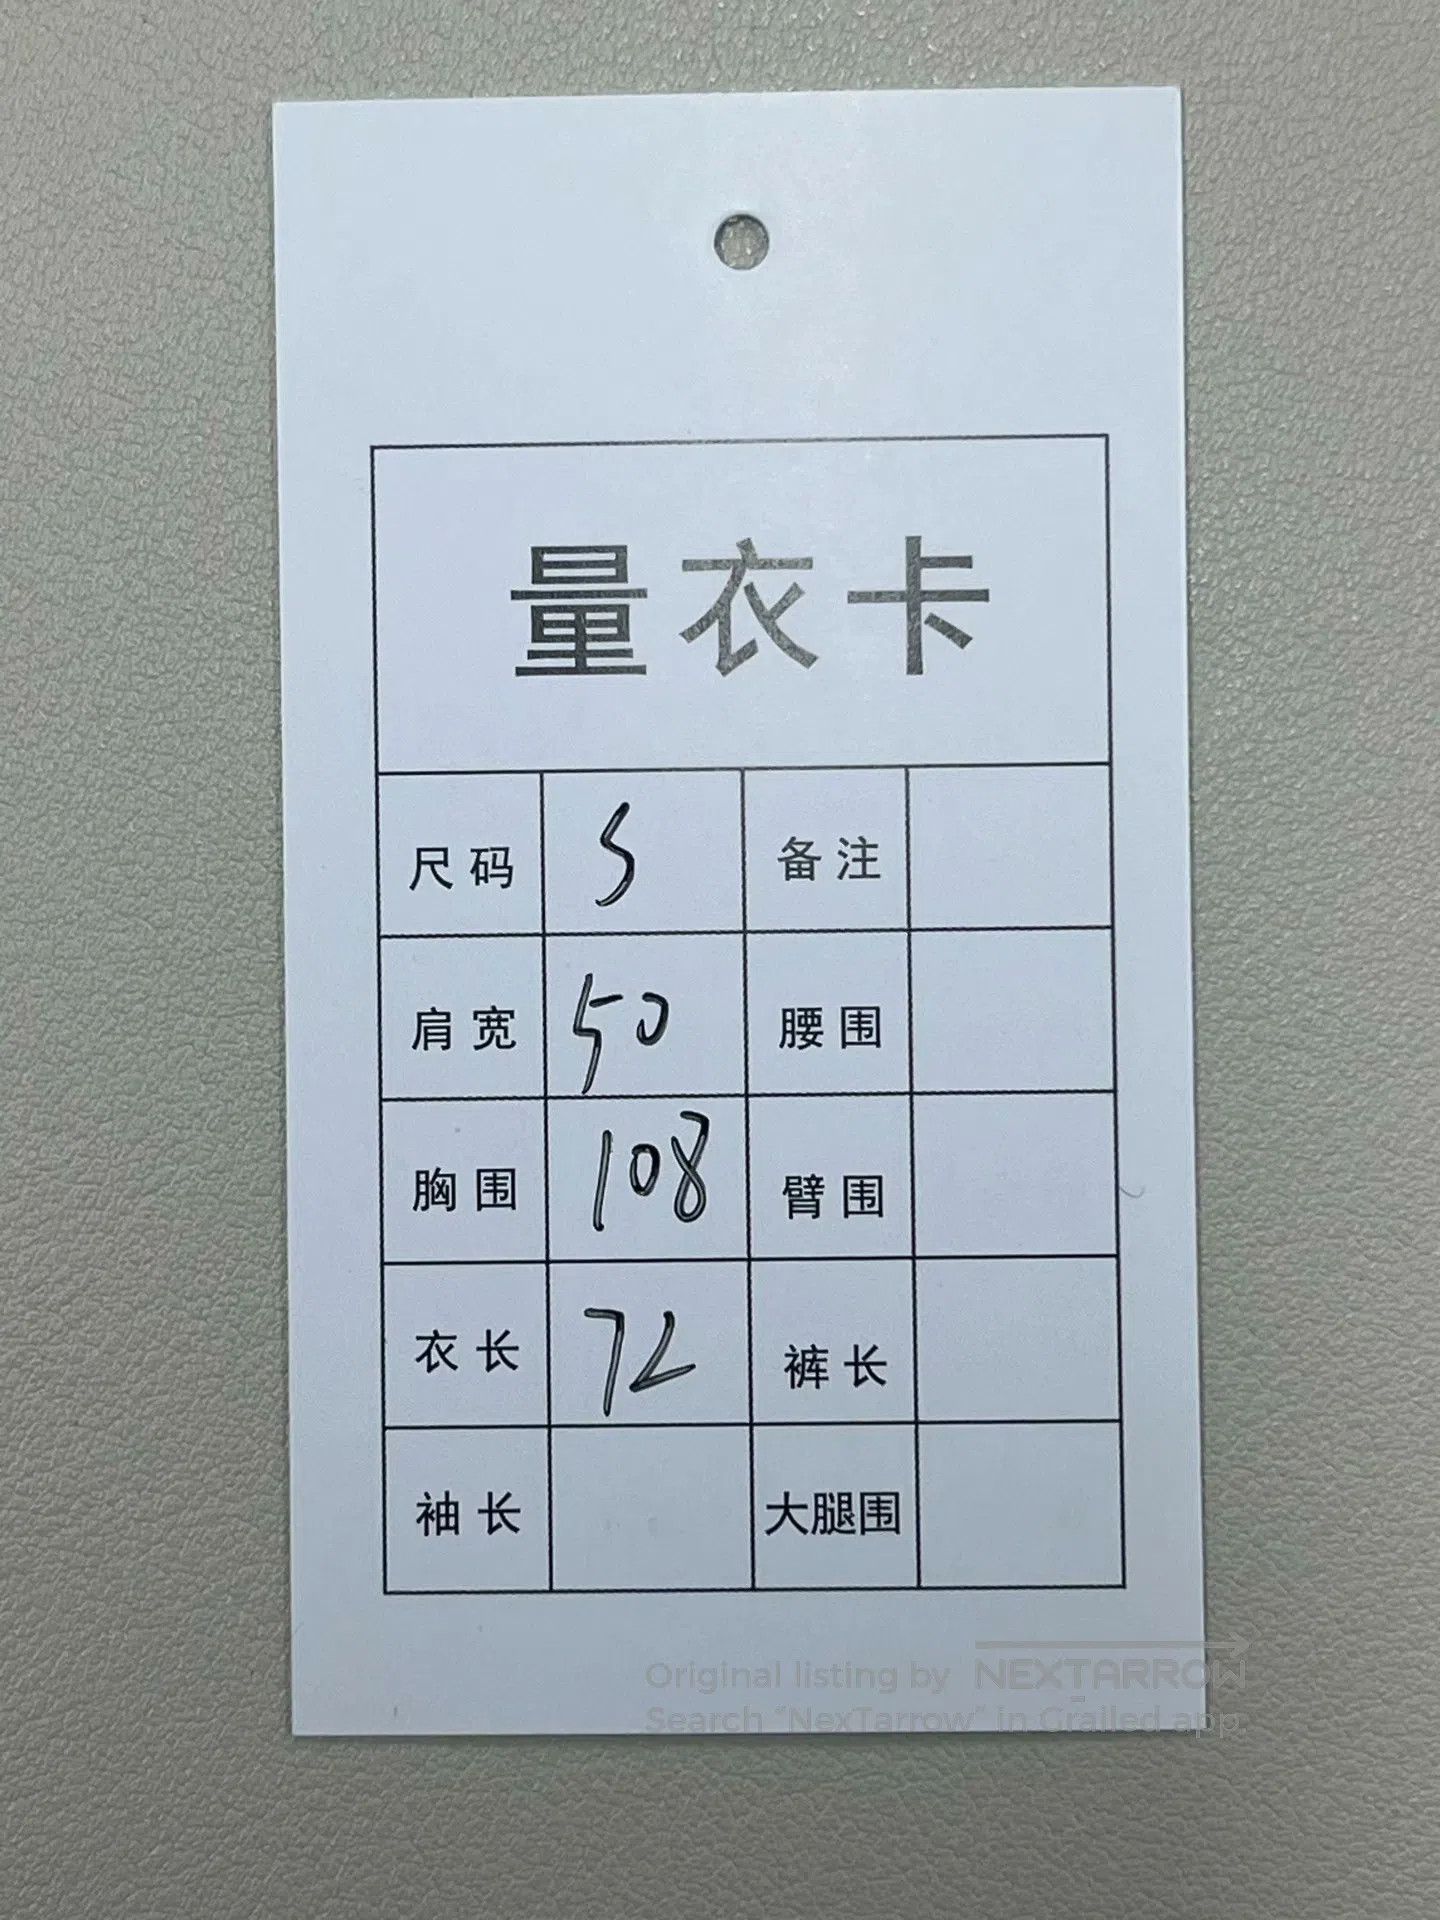 量衣卡
尺码 S 备注
肩宽 50 腰围
胸围 108 臂围
衣长 72 裤长
袖长 大腿围
Original listing by NEXTARROW
Search "NexTarrow" in Grailed app.